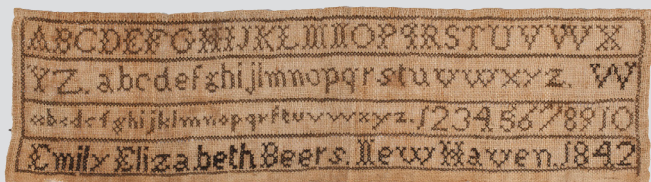 ABCDEFGHIJKLMNOPQRSTUVWX
YZ. abcdefghijlmnopqrstuvwxyz. W
abcdefghijklmnopqrſtuvwxyz. 12345678910
Emily Elizabeth Beers. New Haven. 1842